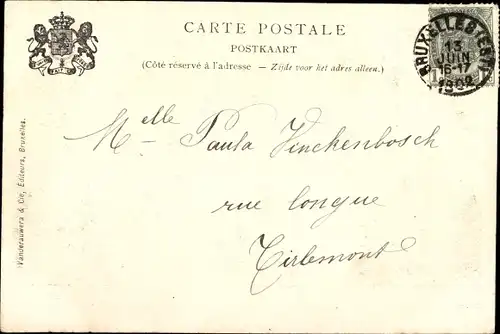 CARTE POSTALE
POSTKAART
(Côté réservé à l'adresse — Zijde voor het adres alleen.)
BRUXELLES
13
JUIN
16-17
1902
Melle Paula Vinckenbosch
rue longue
Tirlemont
Vanderauwera & Cie, Éditeurs, Bruxelles.